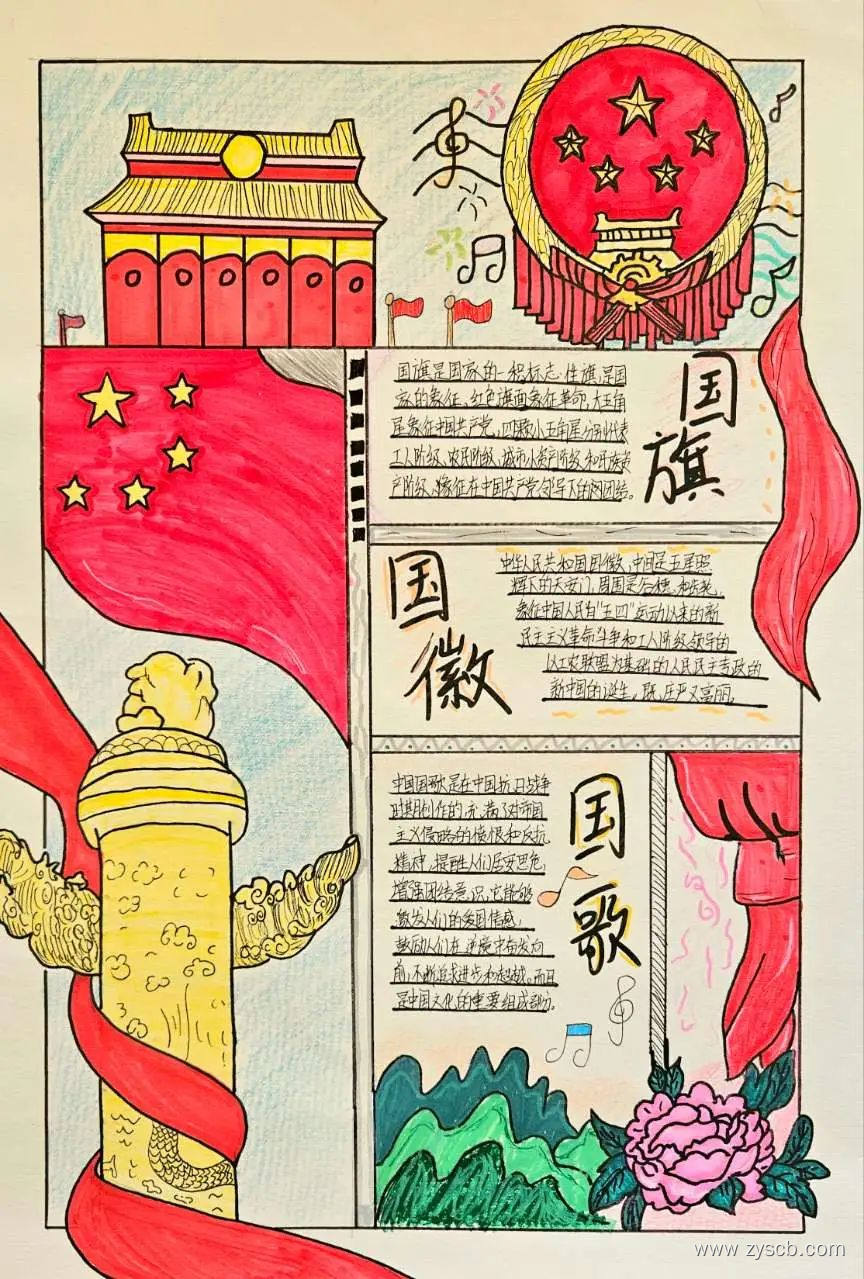 国旗是国家的一种标志性旗,是国
家的象征。红色旗面象征革命,大五角
星象征中国共产党,四颗小五角星分别代表
工人阶级、农民阶级、城市小资产阶级和民族资
产阶级,象征在中国共产党领导下的团结。
国旗
国徽
中华人民共和国国徽,中间是五星照
耀下的天安门,周围是谷穗和齿轮,
象征中国人民自"五四"运动以来的新
民主主义革命斗争和工人阶级领导的
以工农联盟为基础的人民民主专政的
新中国的诞生,既庄严又富丽。
中国国歌是在中国抗日战争
时期创作的,充满了对帝国
主义侵略的愤恨和反抗
精神,提醒人们居安思危,
增强团结意识,它能够
激发人们的爱国情感,
鼓励人们在逆境中奋发向
前,不断追求进步和超越。而且
是中国文化的重要组成部分。
国歌
www.zyscb.com